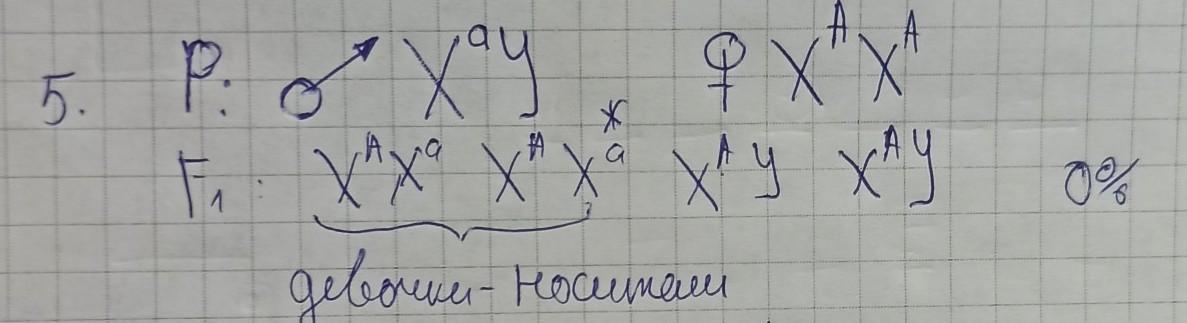 5. P: ♂ XᵃY ♀ XᴬXᴬ
F₁: XᴬXᵃ XᴬXᵃ* XᴬY XᴬY 0%
девочки-носители